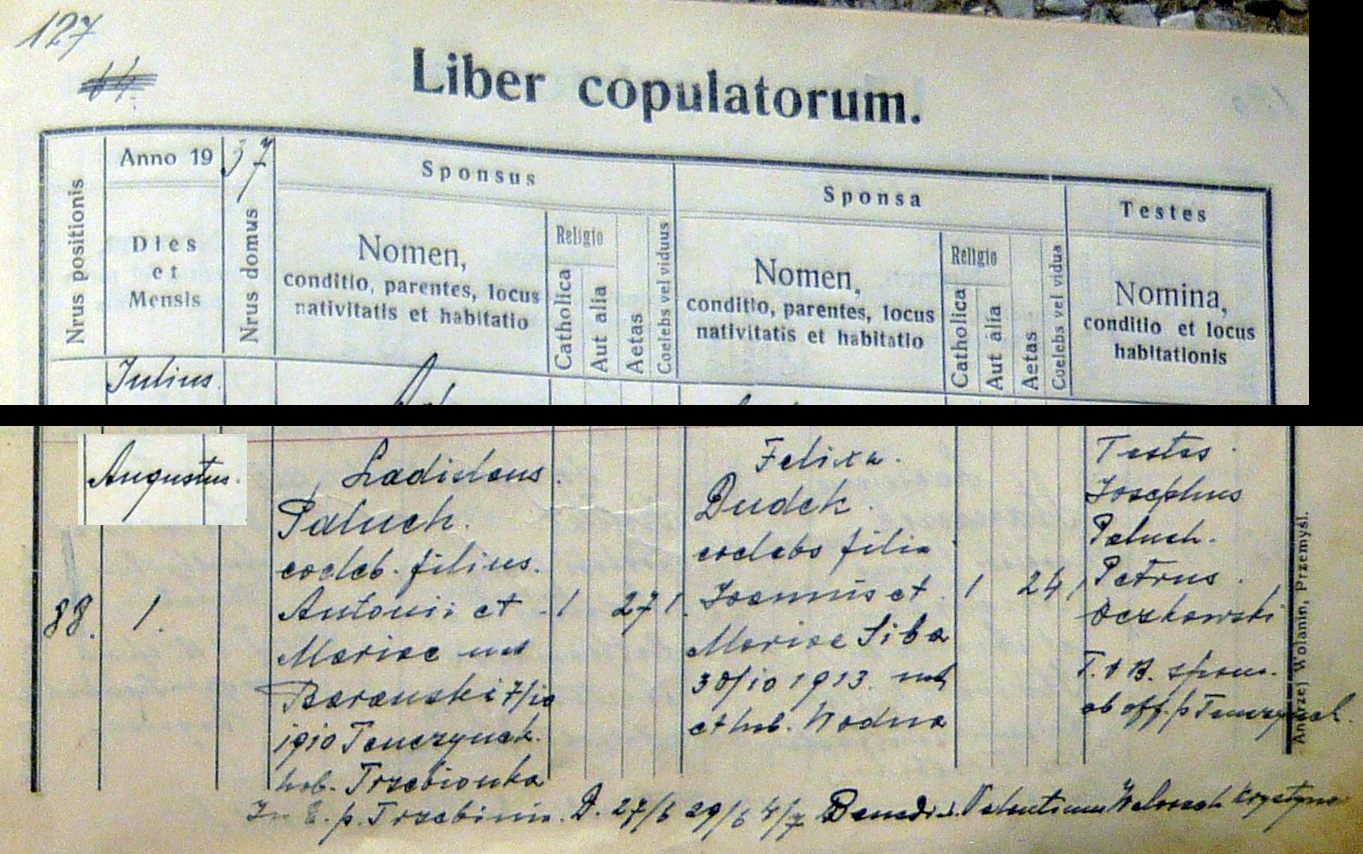 127
Liber copulatorum.
Nrus positionis
Anno 19 37
Dies
et
Mensis
Nrus domus
Sponsus
Nomen,
conditio, parentes, locus
nativitatis et habitatio
Religio
Catholica
Aut alia
Aetas
Coelebs vel viduus
Sponsa
Nomen,
conditio, parentes, locus
nativitatis et habitatio
Religio
Catholica
Aut alia
Aetas
Coelebs vel vidua
Testes
Nomina,
conditio et locus
habitationis
Julius
Augustus.
88.
1.
Ladislaus
Paluch.
coeleb. filius.
Antonii et
Mariae nat
Baranski 7/10
1910 Tenczynek.
hab. Trzebionka
1
27
1
Felixa.
Dudek.
coelebs filia
Joannis et
Mariae Siba
30/10 1913. nat
et hab. Wodna
1
24
1
Testes
Josephus
Paluch.
Petrus
Oczkowski
T. et B. spons.
ab off. p Tenczynek.
In E. p. Trzebinia. D. 27/6 29/6 4/7 Valentinus Krystyna
Andrzej Wolanin, Przemyśl.